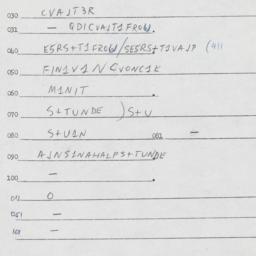 030 CVAJT3R
031 — QDICVAJT1FROW.
040 E5RS+T1FROW/SE5RS+T1VAJP (411
050 FIN1V1N CVONC1K
060 M1NIT
070 S+TUNDE ) S+U
080 S+U1N 081 —
090 AJNSINAHALPS+TUNDE
100 — .
0
—
101 —